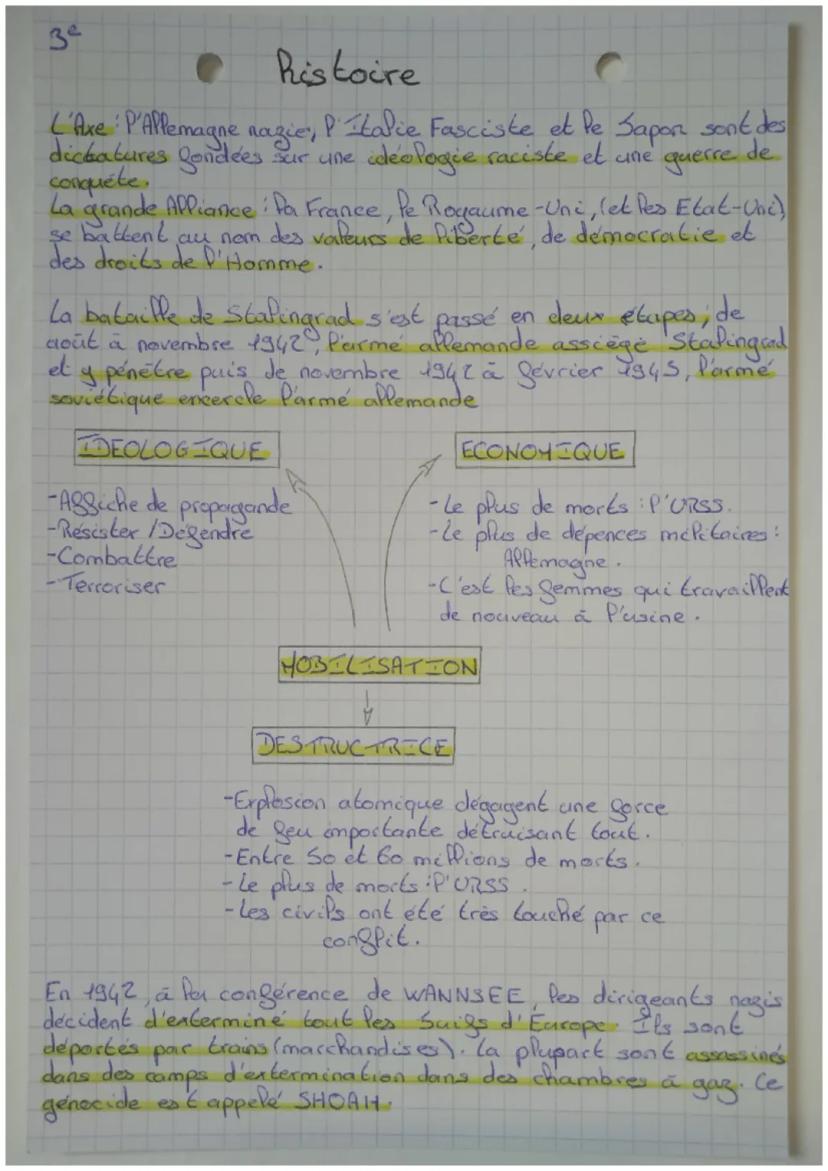 3e
histoire
L'Axe : l'Allemagne nazie, l'Italie Fasciste et le Japon sont des
dictatures fondées sur une idéologie raciste et une guerre de
conquête.
La grande Alliance : la France, le Royaume-Uni, (et les Etat-Uni)
se battent au nom des valeurs de liberté, de démocratie et
des droits de l'Homme.
La bataille de Stalingrad s'est passé en deux étapes, de
août à novembre 1942, l'armé allemande assciège Stalingrad
et y pénètre puis de novembre 1942 à février 1943, l'armé
soviétique encercle l'armé allemande
IDEOLOGIQUE
ECONOMIQUE
-Affiche de propagande
-Résister / Défendre
-Combattre
-Terroriser
-Le plus de morts : l'URSS.
-Le plus de dépences militaires :
Allemagne.
-C'est les femmes qui travaillent
de nouveau à l'usine.
MOBILISATION
DESTRUCTRICE
-Explosion atomique dégagent une force
de feu importante détruisant tout.
-Entre 50 et 60 millions de morts.
-Le plus de morts : l'URSS.
-Les civils ont été très touché par ce
conflit.
En 1942, à la conférence de WANNSEE, les dirigeants nazis
décident d'exterminé tout les Juifs d'Europe. Ils sont
déportés par trains (marchandises). La plupart sont assassinés
dans des camps d'extermination dans des chambres à gaz. Ce
génocide est appelé SHOAH.